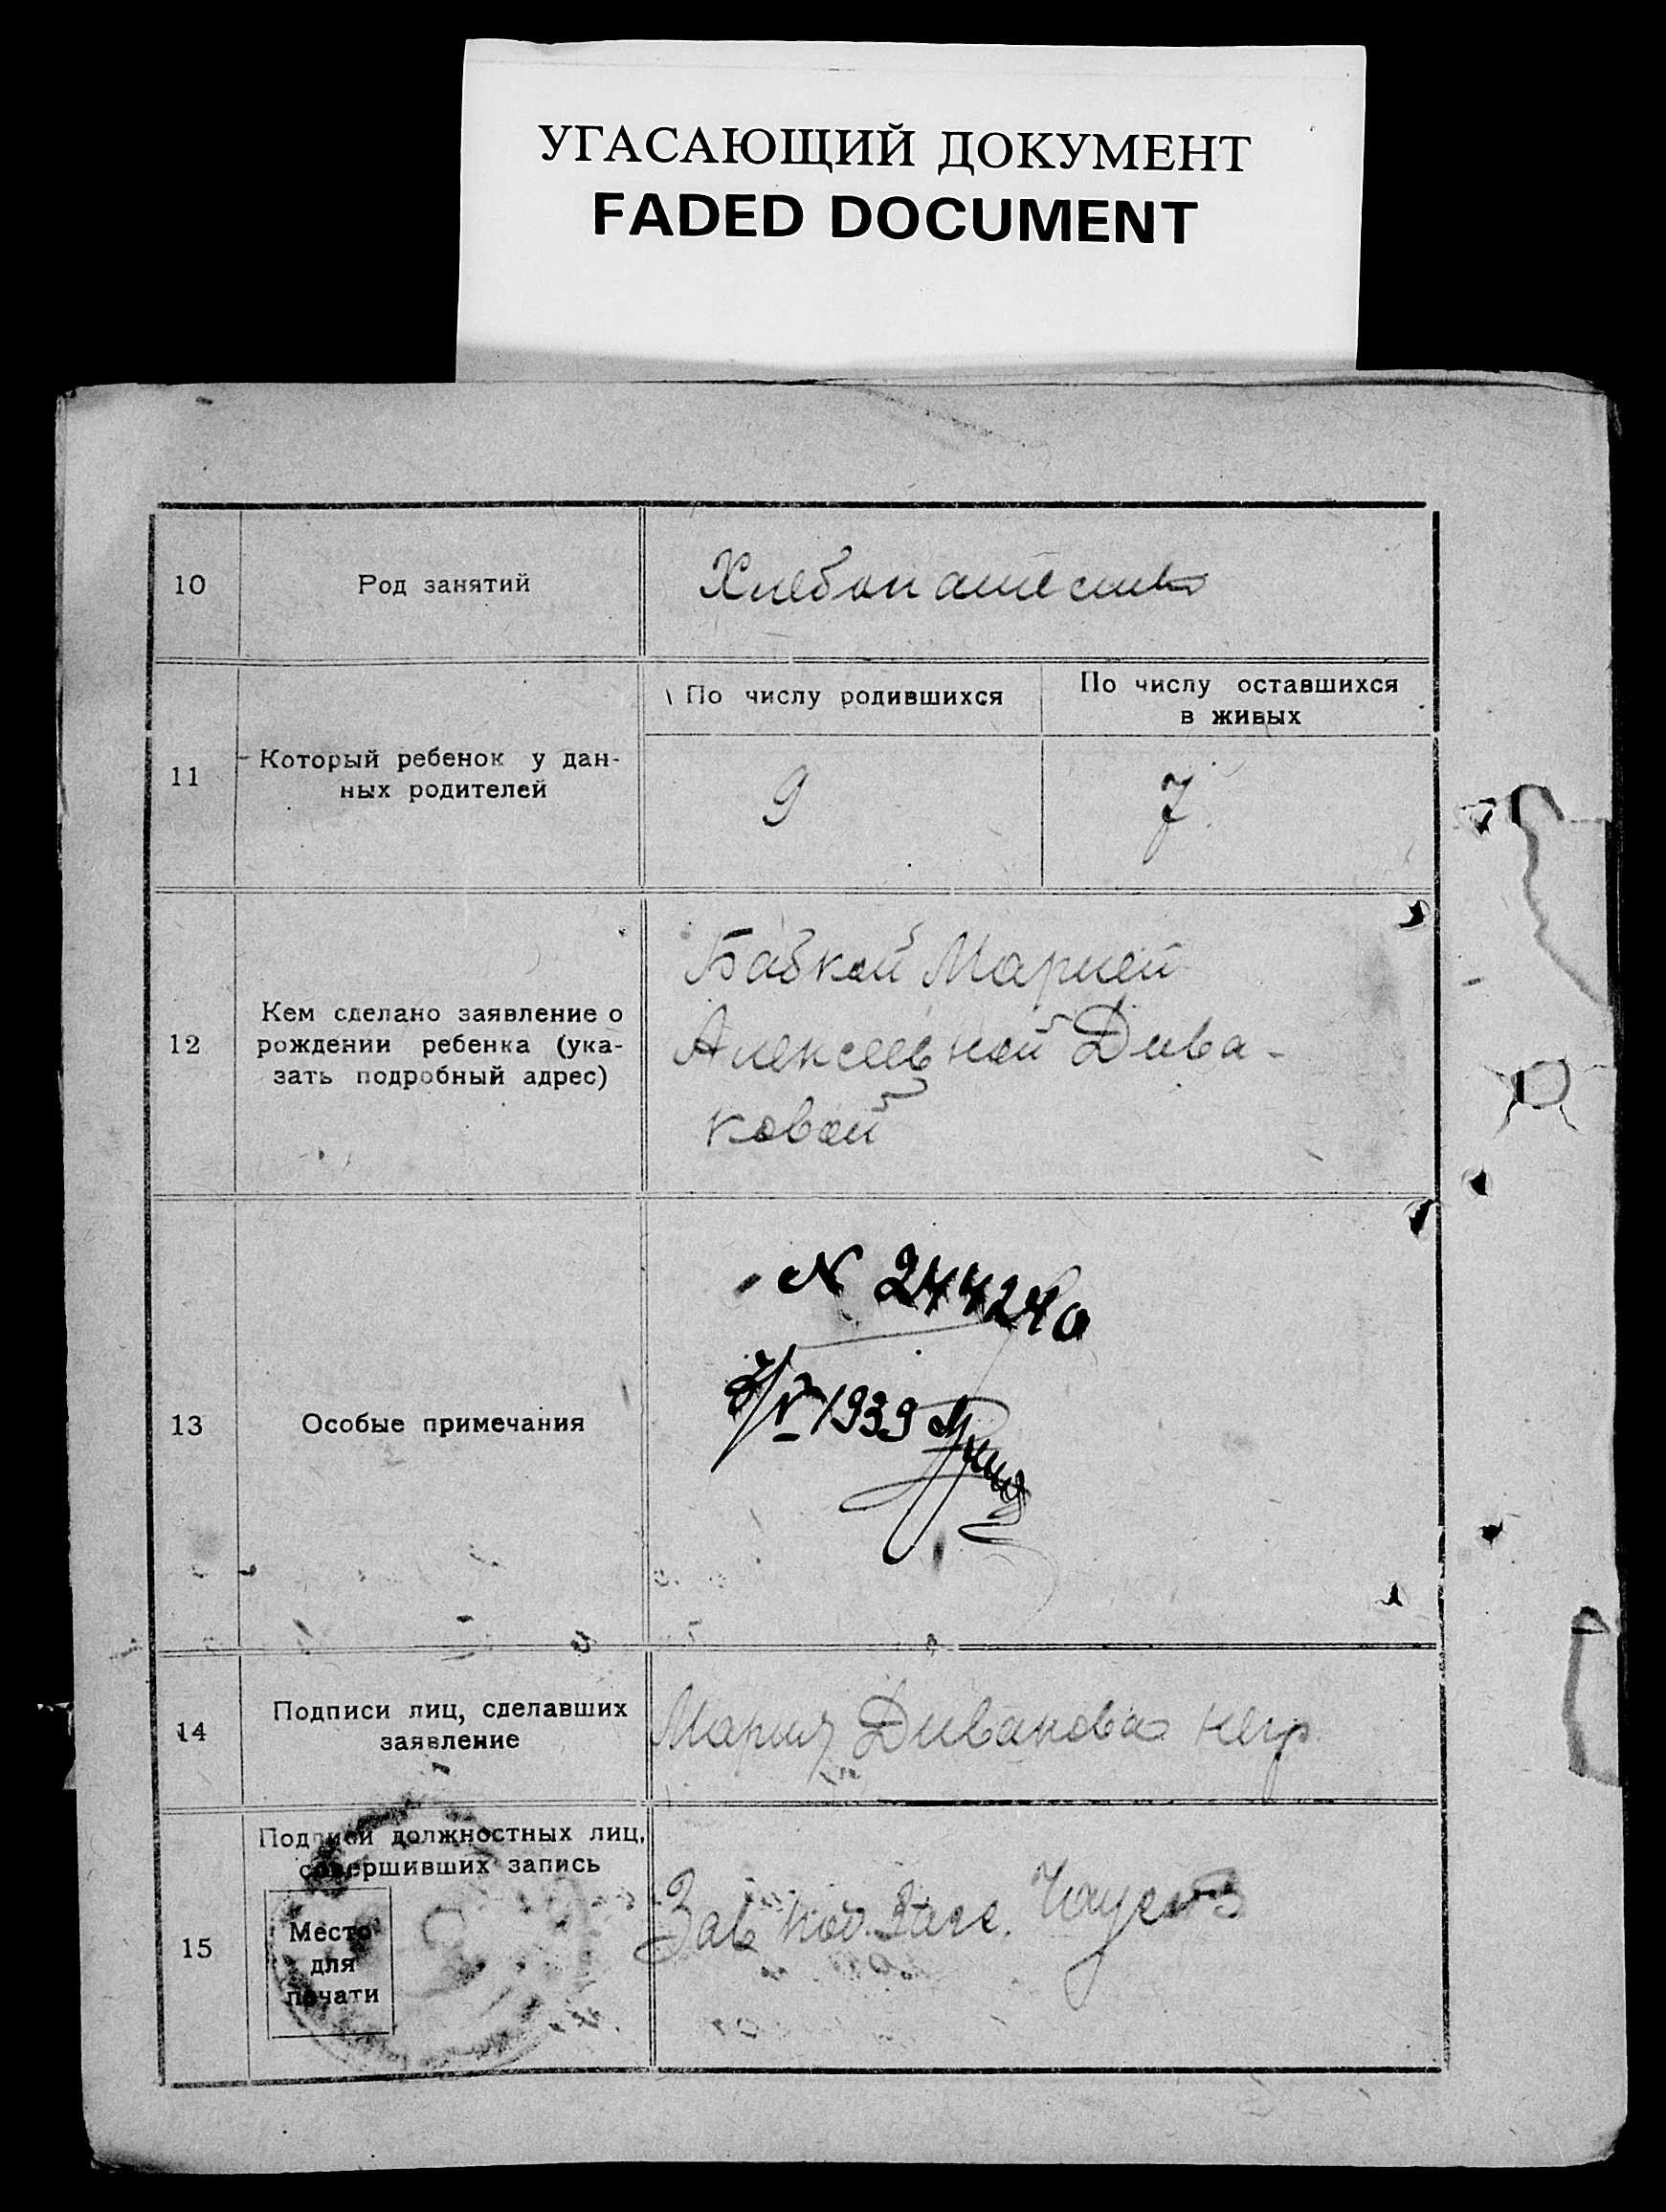 УГАСАЮЩИЙ ДОКУМЕНТ
FADED DOCUMENT
10
Род занятий
Хлебопашество
11
Который ребенок у дан-
ных родителей
По числу родившихся
По числу оставшихся
в живых
9
7
12
Кем сделано заявление о
рождении ребенка (ука-
зать подробный адрес)
Бабкой Марией
Алексеевной Дива-
ковой
13
Особые примечания
N 244240
V 1939
14
Подписи лиц, сделавших
заявление
Мария Дивакова негр.
15
Подписи должностных лиц,
совершивших запись
Место
для
печати
Зав